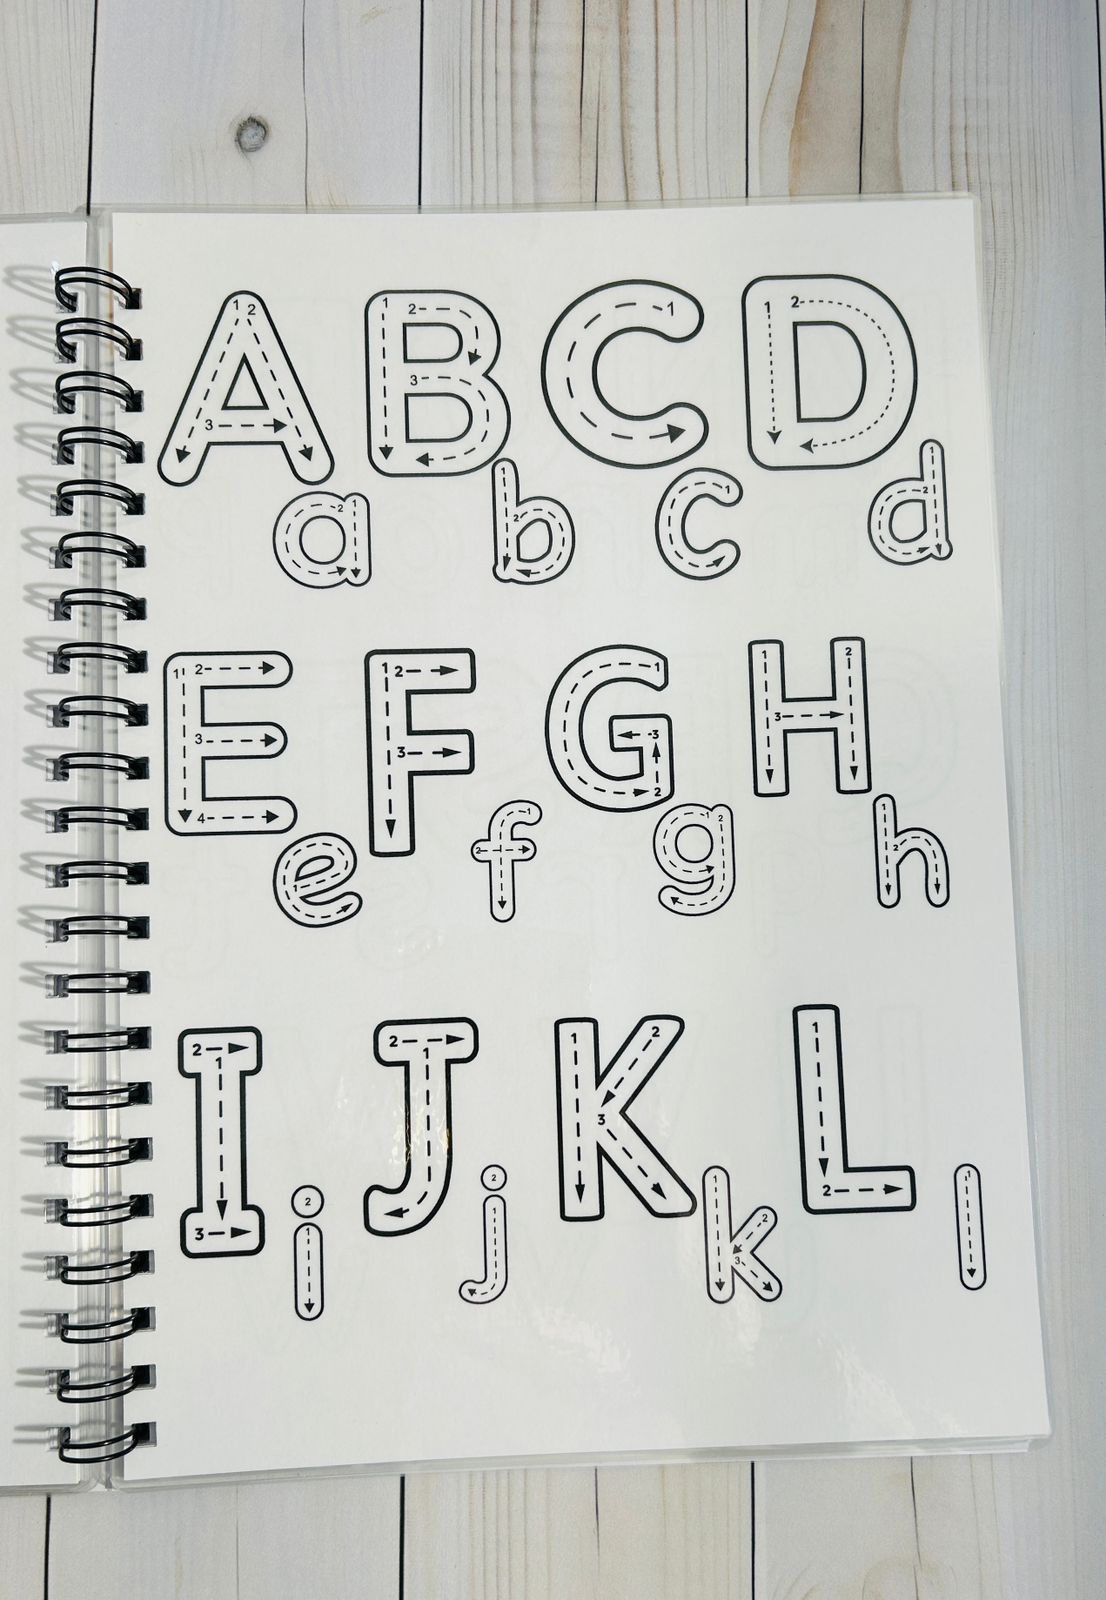 A B C D
a b c d
E F G H
e f g h
I J K L
i j k l